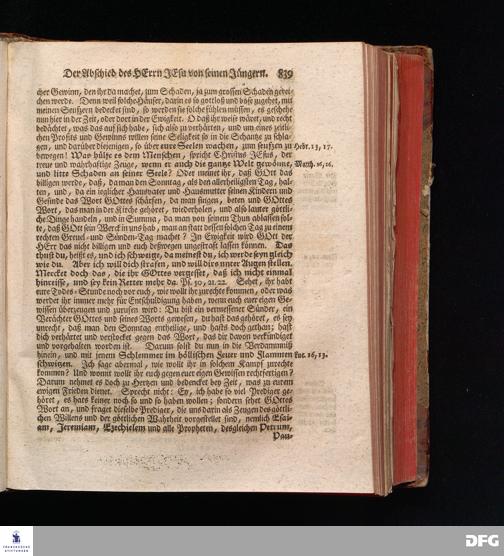 Der Abschied des HErrn JEsu von seinen Jüngern. 839
cher Gewinn, den ihr da machet, zum Schaden, ja zum grossen Schaden gerei-
chen werde. Denn weil solche Häuser, darin es so gottloß und böse zugehet, mit
meinen Seufzern bedecket sind, so werden sie solche fühlen müssen, es geschehe
nun hier in der Zeit, oder dort in der Ewigkeit. O daß ihr weise wäret, und recht
bedächtet, was das auf sich habe, sich also zu verhärten, und um eines zeitli-
chen Profits und Gewinns willen seine Seligkeit so in die Schantze zu schla-
gen, und darüber diejenigen, so über eure Seelen wachen, zum seufzen zu Hebr. 13, 17.
bewegen! Was hülfe es dem Menschen, spricht Christus JEsus, der
treue und wahrhaftige Zeuge, wenn er auch die gantze Welt gewönne, Matth. 16, 26.
und litte Schaden an seiner Seele? Oder meinet ihr, daß GOtt das
billigen werde, daß, da man den Sonntag, als den allerheiligsten Tag, hal-
ten, und, da ein ieglicher Hausvater und Hausmutter seinen Kindern und
Gesinde das Wort GOttes schärfen, da man singen, beten und GOttes
Wort, das man in der Kirche gehöret, wiederholen, und also lauter göttli-
che Dinge handeln, und in Summa, da man von seinem Thun ablassen sol-
te, daß GOtt sein Werck in uns hab, man an statt dessen solchen Tag zu einem
rechten Greuel- und Sünden-Tag machet? In Ewigkeit wird GOtt der
HErr das nicht billigen und euch deßwegen ungestraft lassen können. Das
thust du, heißt es, und ich schweige, da meinest du, ich werde seyn gleich
wie du. Aber ich will dich strafen, und will dirs unter Augen stellen.
Mercket doch das, die ihr GOttes vergesset, daß ich nicht einmal
hinreisse, und sey kein Retter mehr da. Ps. 50, 21. 22. Sehet, ihr habt
eure Todes-Stunde noch vor euch, wie wollt ihr zurechte kommen, oder was
werdet ihr immer mehr für Entschuldigung haben, wenn euch euer eigen Ge-
wissen überzeugen und zurufen wird: Du bist ein vermessener Sünder, ein
Verächter GOttes und seines Worts gewesen, du hast das gehöret, es sey
unrecht, daß man den Sonntag entheilige, und hasts doch gethan; hast
dich verhärtet und verstocket gegen das Wort, das dir davon verkündiget
und vorgehalten worden ist. Darum solst du nun in die Verdammniß
hinein, und mit jenem Schlemmer im höllischen Feuer und Flammen Luc. 16, 23.
schwitzen. Ich sage abermal, wie wollt ihr in solchem Kampf zurechte
kommen? Und womit wollt ihr euch gegen euer eigen Gewissen rechtfertigen?
Darum nehmet es doch zu Hertzen und bedencket bey Zeit, was zu eurem
ewigen Frieden dienet. Sprecht nicht: Ey, ich habe so viel Prediger ge-
höret, es hats keiner noch so und so haben wollen; sondern sehet GOttes
Wort an, und fraget dieselbe Prediger, die uns darin als Zeugen des göttli-
chen Willens und der göttlichen Wahrheit vorgestellet sind, nemlich Esai-
am, Jeremiam, Ezechielem und alle Propheten, desgleichen Petrum,
Pau-
FRANCKESCHE
STIFTUNGEN
DFG